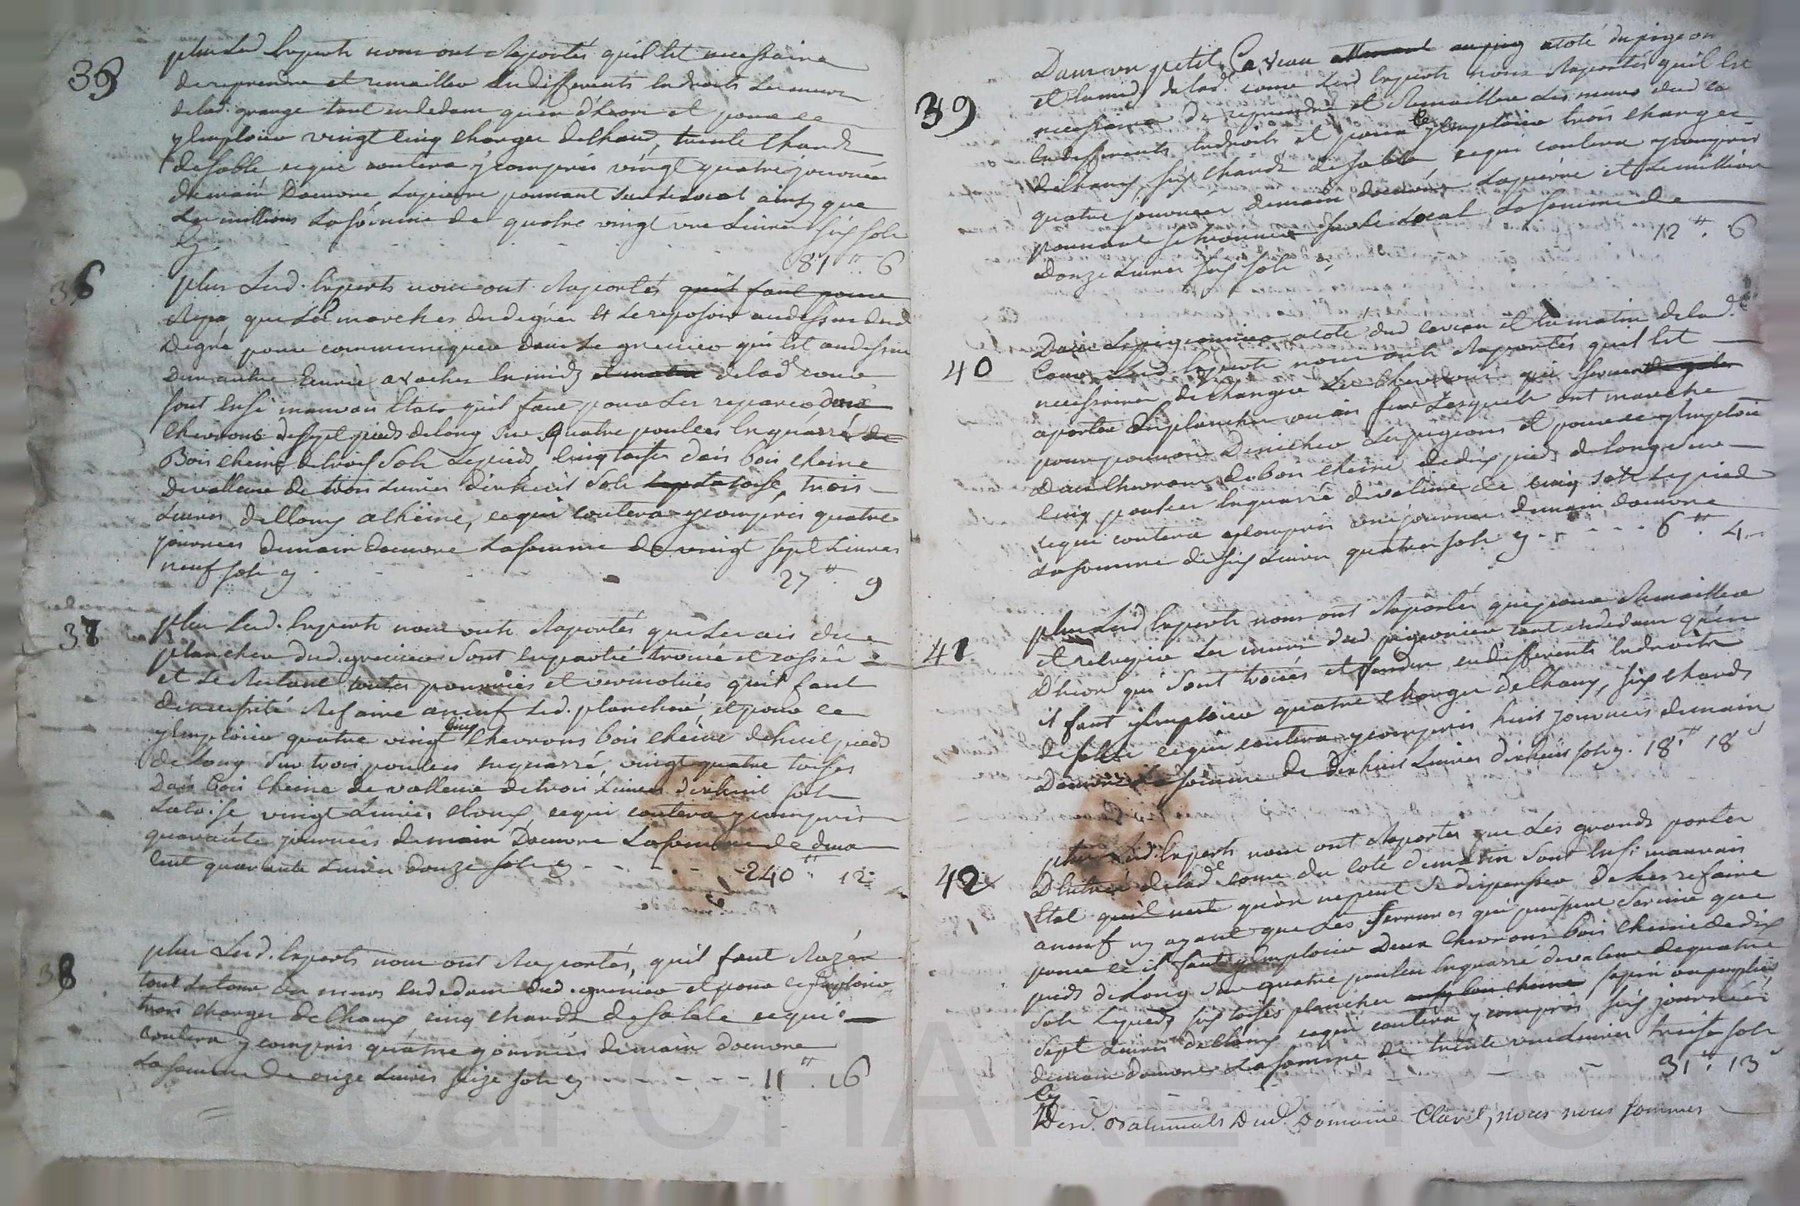 35
plus Lesd. Experts nous ont Raportés quil Est necessaire
de reprendre et remailler En differents Endroits Les murs
de lad. grange tant endedans quen d'heors et pour ce
y Emploier vingt Cinq Charges de Chaux, trente Chards
de Sable ce qui coutera y compris vingt quatre journées
demain Doeuvre La pierre prenant sur le local ainsy que
Les millions La somme de quatre vingt une Livres six sols
Cy 81 ". 6
36
plus Les d. Experts nous ont Raportés quil faut pour
que Les marches du degrés Et Le reposoir au dessus dud.
Degré pour communiquer dans Le grenier qui Est au dessus
Dun autre Ecurie a vaches En midy et matin de lad. cour
sont En si mauvais Etats quil faut pour Les reparer deux
Chevrons de sept pieds de long Sur quatre poulces En quarré de
Bois cheine de trois Sols Le pied, Cinq toises Dais bois cheine
De valleur de trois Livres dixhuit Sols La toise, trois
Livres de Cloux a cheine, ce qui coutera y compris quatre
journées demain doeuvre La somme de vingt sept Livres
neuf sols cy 27 ". 9
37
plus Les d. Experts nous ont Raportés que Les ais du
plancher dud. grenier sont En partie trouée et cassée
et Le Restant toutes pourries et vermoulues quil faut
de necessité Refaire aneuf Led. plancher, et pour ce
y Emploier quatre vingt cinq Chevrons bois cheine de huit pieds
de Long Sur trois poulces En quarré, vingt quatre toises
Dais bois cheine de valleur de trois Livres dixhuit Sols
La toise, vingt Livres cloux, ce qui coutera y compris
quarante journées demain Doeuvre La somme de deux
Cent quarante Livres Douze sols cy - - - 240 " 12
38
plus Lesd. Experts nous ont Raportés, quil faut Razer
tout Le tour des murs En dedans dud. grenier et pour ce y Emploier
trois charges de Chaux, cinq chards de Sable ce qui
coutera y compris quatre journées demain doeuvre
La somme de onze Livres seize sols cy - - - - 11 ". 16
Dans un petit Caveau attenant au puy a coté du pigeon
39
et En midy de lad. cour Lesd Experts nous Raportés quil Est
necessaire de reprendre et Remailler Les murs dud. ca
En differents Endroits et pour ce y Emploier trois charges
de Chaux, six chards de Sable ce qui coutera y compris
quatre journées demain doeuvre La pierre et Le million
prenant sur le Local La somme de
Douze Livres six sols cy 12 ". 6
Dans Le pigeonnier a coté dud. caveau et En matin de lad.
40
Cour Lesd. Experts nous ont Raportés quil Est
necessaire de changer Les Chevrons qui servent
a porter En plancher ou ais sur Lesquels ont marche
pour pouvoir Denicher Les pigeons et pour ce y Emploier
Deux Chevrons de bois cheine de dix pieds de Long sur
Cinq poulces En quarré de valeur de cinq sols Le pied
ce qui coutera y compris une journée demain doeuvre
La somme de six Livres quatre sols cy - - - - 6 ". 4
plus Lesd. Experts nous ont Raportés que pour Remailler
41
et recrepir Les murs dud. pigeonier tant endedans qu'en
D'heor qui sont trouées et fendu en differents Endroits
il faut y Emploier quatre charges de Chaux, six chards
de sable ce qui coutera y compris huit journées demain
Doeuvre La somme de Dixhuit Livres dixhuit sols cy. 18. " 18
plus Lesd. Experts nous ont Raportés que Les grands portes
42
D'Entrée de lad. cour du coté de matin sont En si mauvais
Etat quil nest quon ne peut Se dispenser de Les refaire
aneuf ny ayant que Les ferrures qui puisse servir que
pour ce il faut y Emploier Deux Chevrons bois cheine de dix
pieds de Long sur quatre poulces En quarré de valeur de quatre
Sols Le pied, six toises plancher sapin ou peuplier
sept Livres de Cloux ce qui coutera y compris six journées
demain doeuvre La somme de trente une Livres treize sols
Cy - - - - 31 ". 13
Desd. Batiments Dud. Domaine Clavel, nous nous sommes